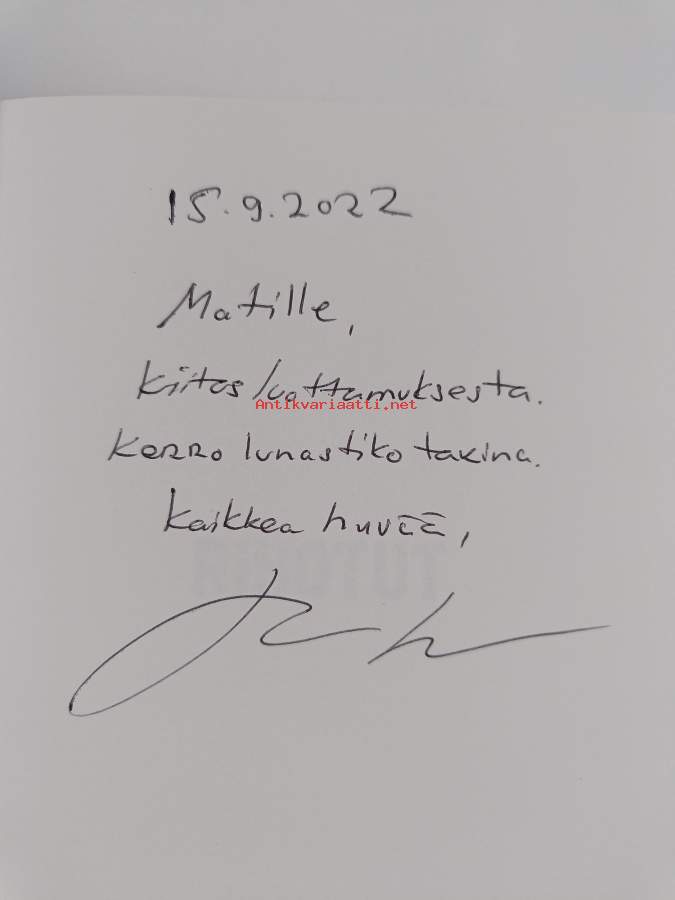 15.9.2022
Matille,
Kiitos luottamuksesta.
Antikvariaatti.net
Kerro lunastiko tarina.
Kaikkea hyvää,